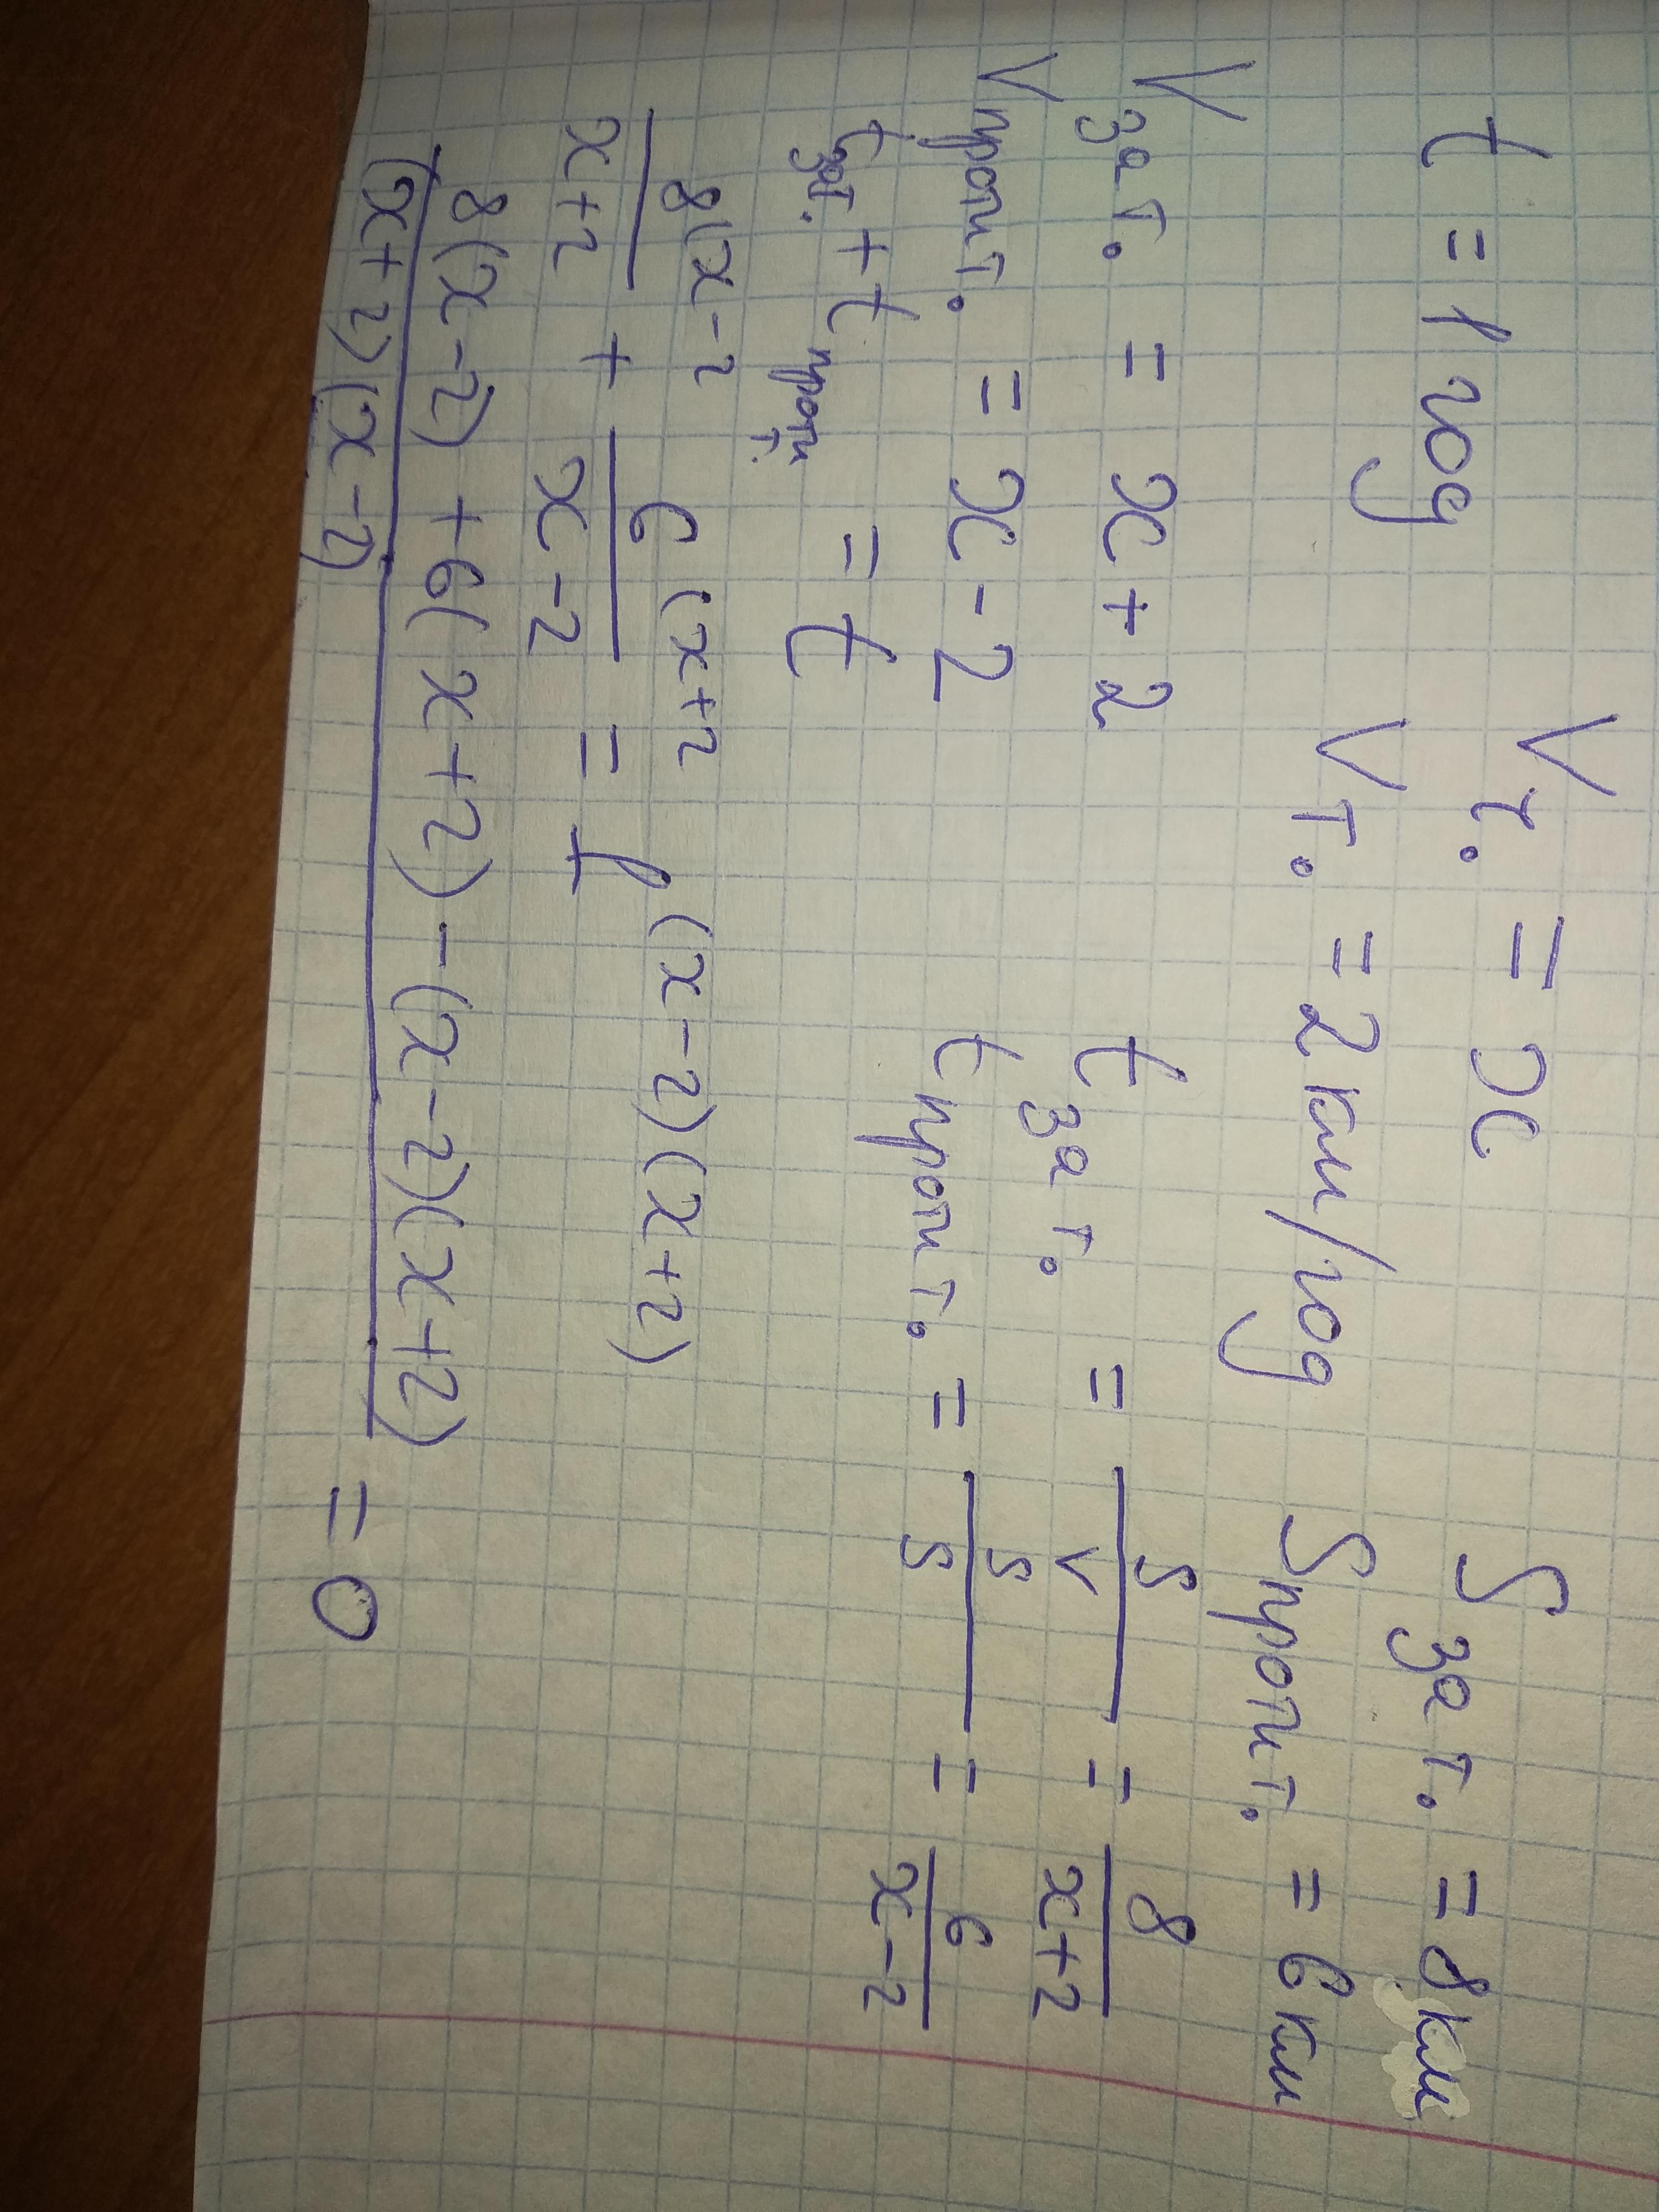 t = 1 год Vч. = x Sза т. = 8 км
Vт. = 2 км/год Sпроти т. = 6 км
Vза т. = x + 2 tза т. = S/V = 8/(x+2)
Vпроти т. = x - 2 tпроти т. = S/S = 6/(x-2)
tзат. + tпроти т. = t
8(x-2 / x+2 + 6(x+2 / x-2 = 1(x-2)(x+2)
8(x-2) + 6(x+2) - (x-2)(x+2) / (x+2)(x-2) = 0